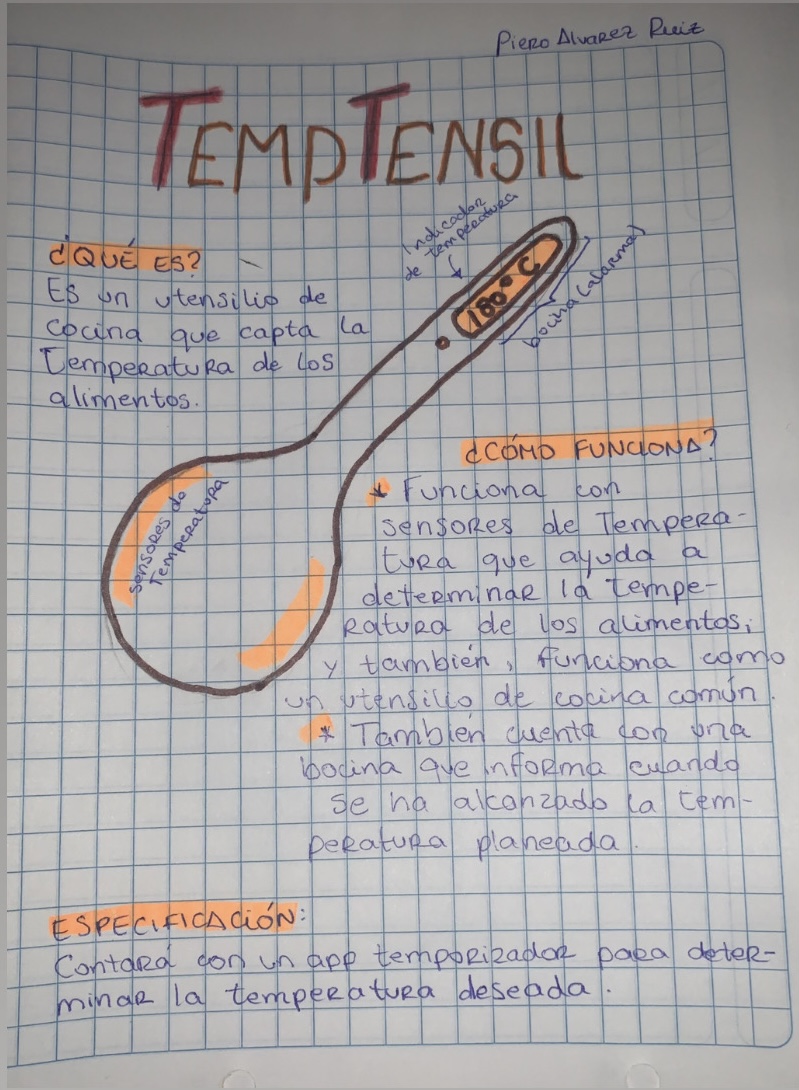 Piero Alvarez Ruiz
TEMPTENSIL
Indicador
de temperatura
180° C
bocina (alarma)
¿QUÉ ES?
Es un utensilio de
cocina que capta la
Temperatura de los
alimentos.
sensores de
Temperatura
¿CÓMO FUNCIONA?
* Funciona con
sensores de Tempera-
tura que ayuda a
determinar la tempe-
ratura de los alimentos,
y también, funciona como
un utensilio de cocina común.
* También cuenta con una
bocina que informa cuando
se ha alcanzado la tem-
peratura planeada.
ESPECIFICACIÓN:
Contará con un app temporizador para deter-
minar la temperatura deseada.